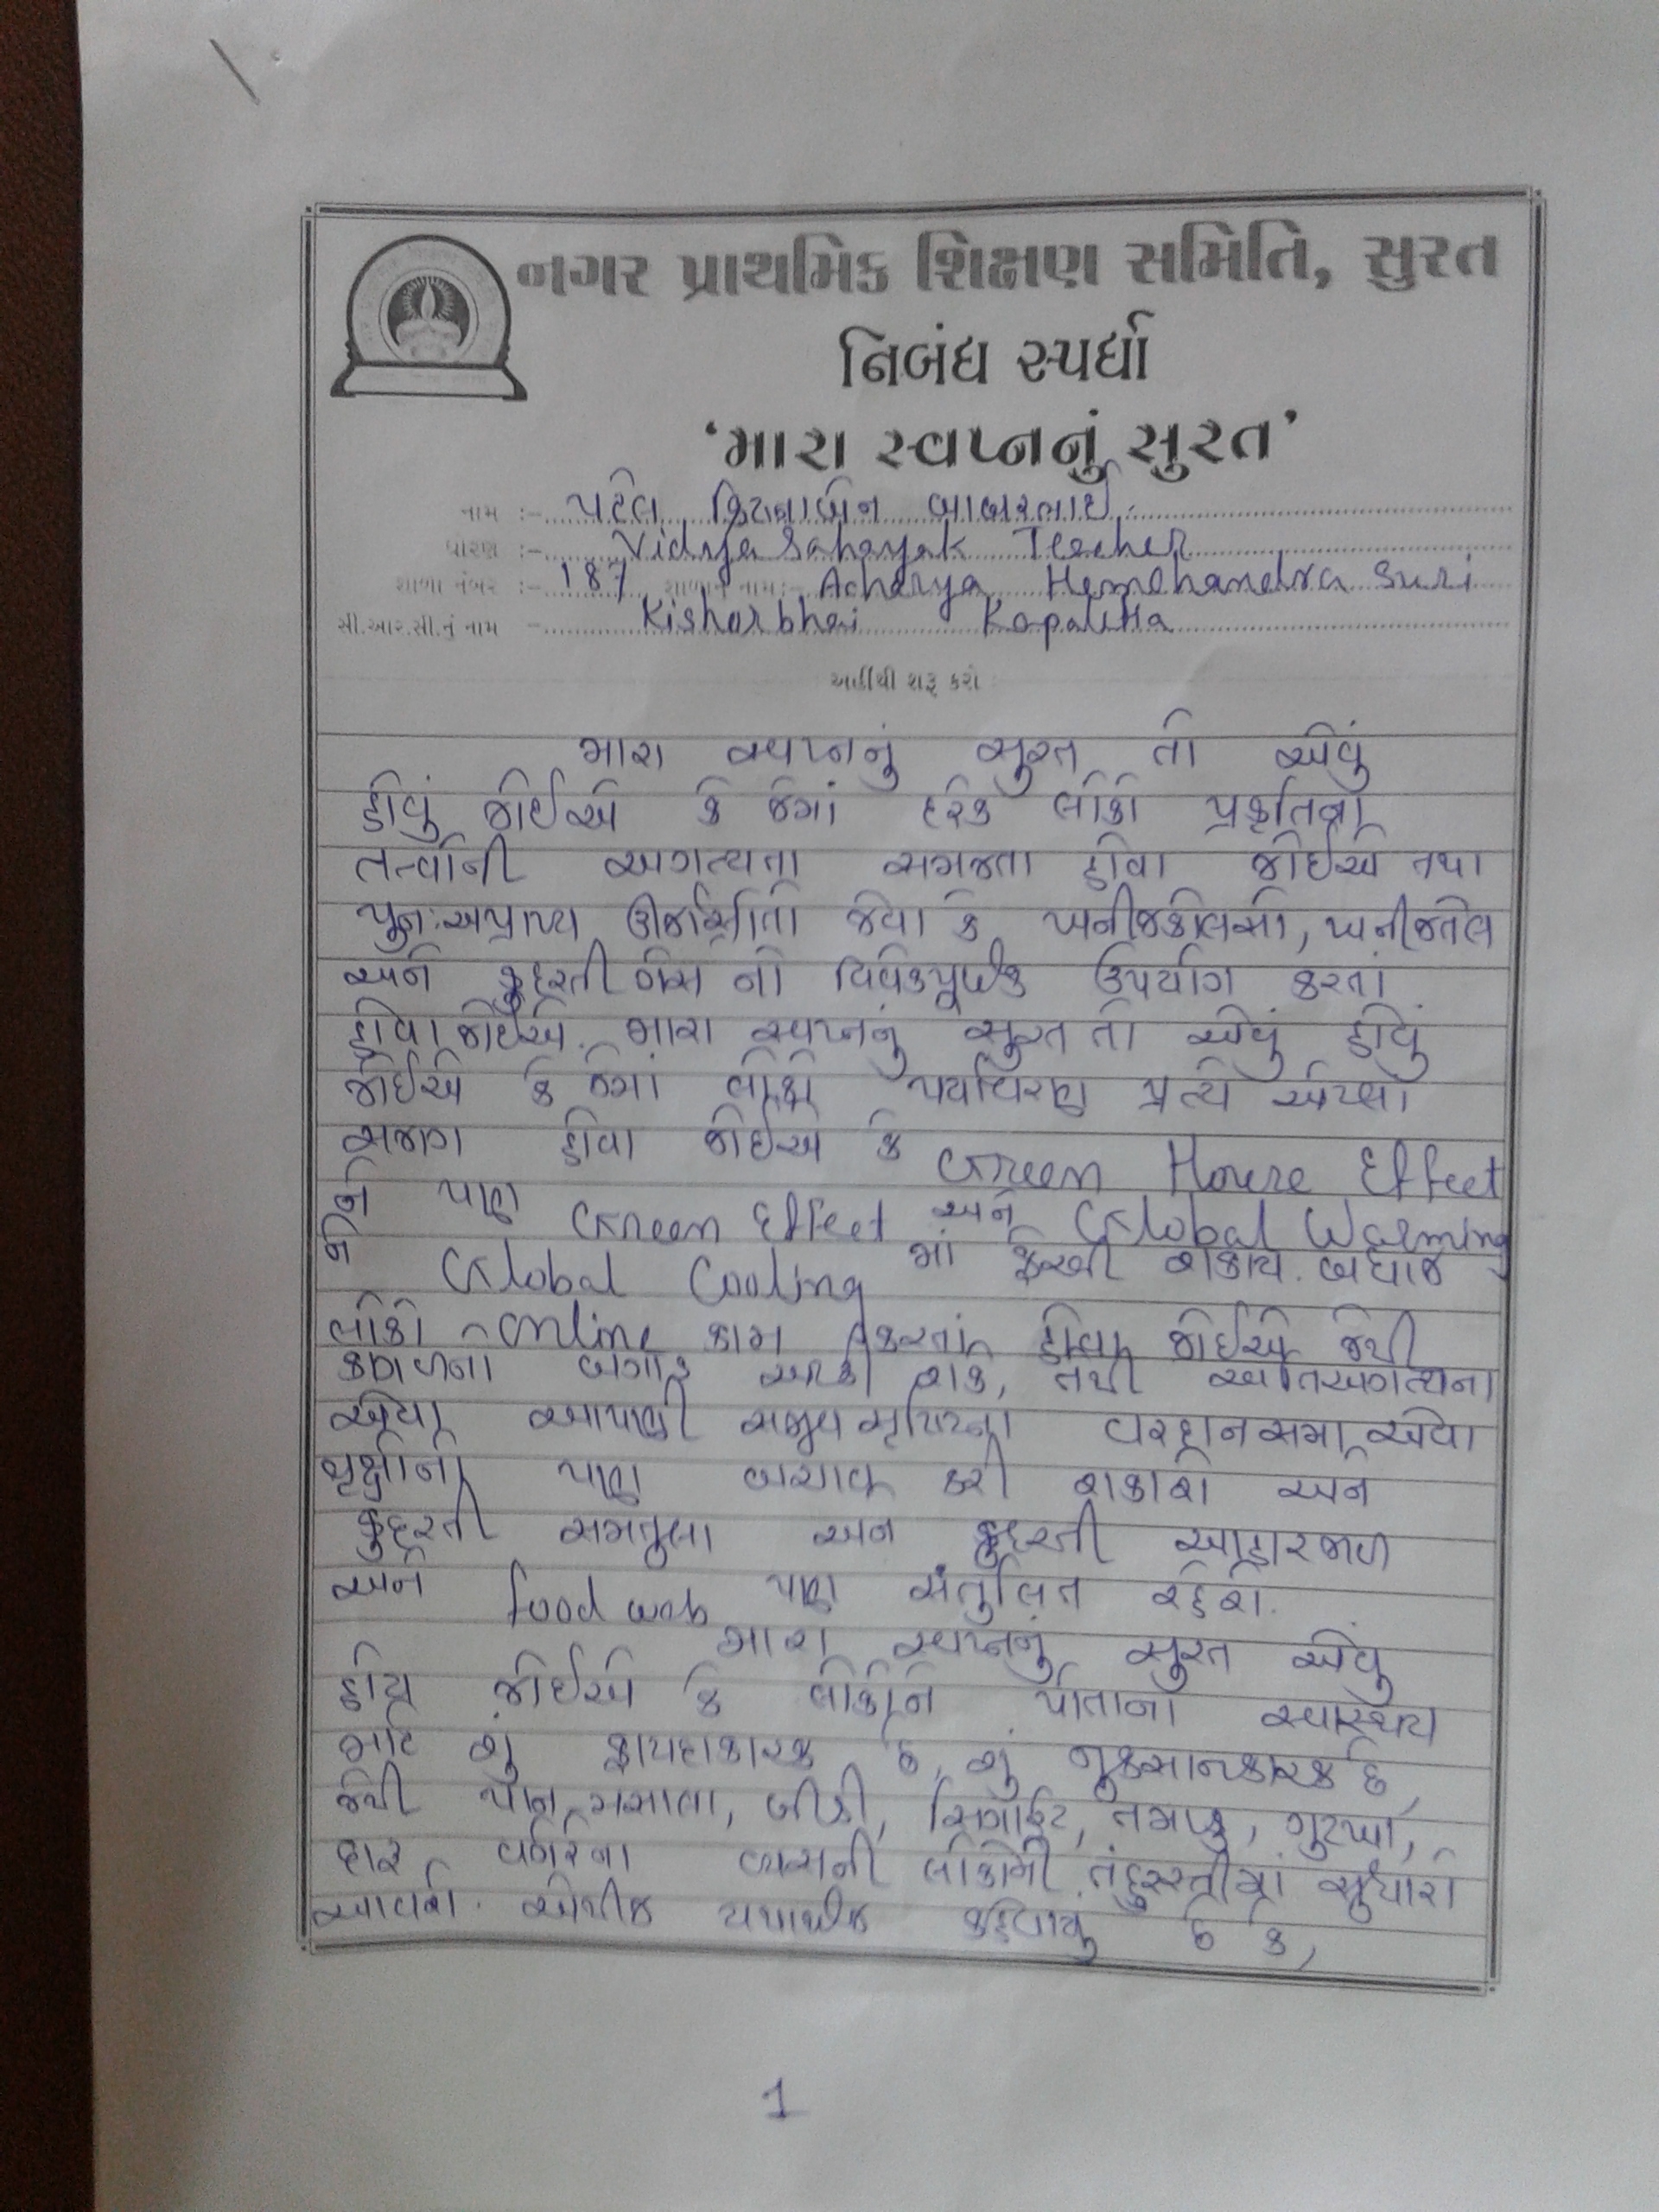 નગર પ્રાથમિક શિક્ષણ સમિતિ, સુરત
નિબંધ સ્પર્ધા
‘મારા સ્વપ્નનું સુરત’
નામ :- પટેલ બાબરભાઈ
ધોરણ :- Vidya Sahayak Teacher
શાળા નંબર :- 187 શાળાનું નામ :- Acharya Hemchandra Suri
સી.આર.સી.નું નામ :- Kishorbhai
અહીંથી શરૂ કરો
મારા સ્વપ્નનું સુરત તો એવું
હોવું જોઈએ કે જેમાં દરેક લોકો પ્રકૃતિના
તત્વોની અગત્યતા સમજતા હોવા જોઈએ તથા
પુનઃઅપ્રાપ્ય ઊર્જાસ્રોતો જેવા કે ખનીજકોલસો, ખનીજતેલ
અને કુદરતી ગેસ નો વિવેકપૂર્વક ઉપયોગ કરતાં
હોવા જોઈએ. મારા સ્વપ્નનું સુરત તો એવું હોવું
જોઈએ કે જેમાં લોકો પર્યાવરણ પ્રત્યે એટલા
સજાગ હોવા જોઈએ કે Green House Effect
ને પણ Green Effect અને Global Warming
ને Global Cooling માં ફેરવી શકાય. બધાજ
લોકો online કામ કરતાં હોવા જોઈએ જેથી
કાગળના બગાડ અટકી શકે, તેથી અતિઅગત્યના
એવા આપણી સજીવસૃષ્ટિના વરદાનસમા એવા
વૃક્ષોનો પણ બચાવ કરી શકાશે અને
કુદરતી સમતુલા અને કુદરતી આહારજાળ
અને food web પણ સંતુલિત રહેશે.
મારા સ્વપ્નનું સુરત એવું
હોવું જોઈએ કે લોકોને પોતાના સ્વાસ્થ્ય
માટે શું ફાયદાકારક છે, શું નુકસાનકારક છે,
જેથી પાન, મસાલા, બીડી, સિગારેટ, તમાકુ, ગુટખા,
દારૂ વગેરેના વ્યસની લોકોની તંદુરસ્તીમાં સુધારો
આવશે. એથીજ કહેવાયું છે કે,
1